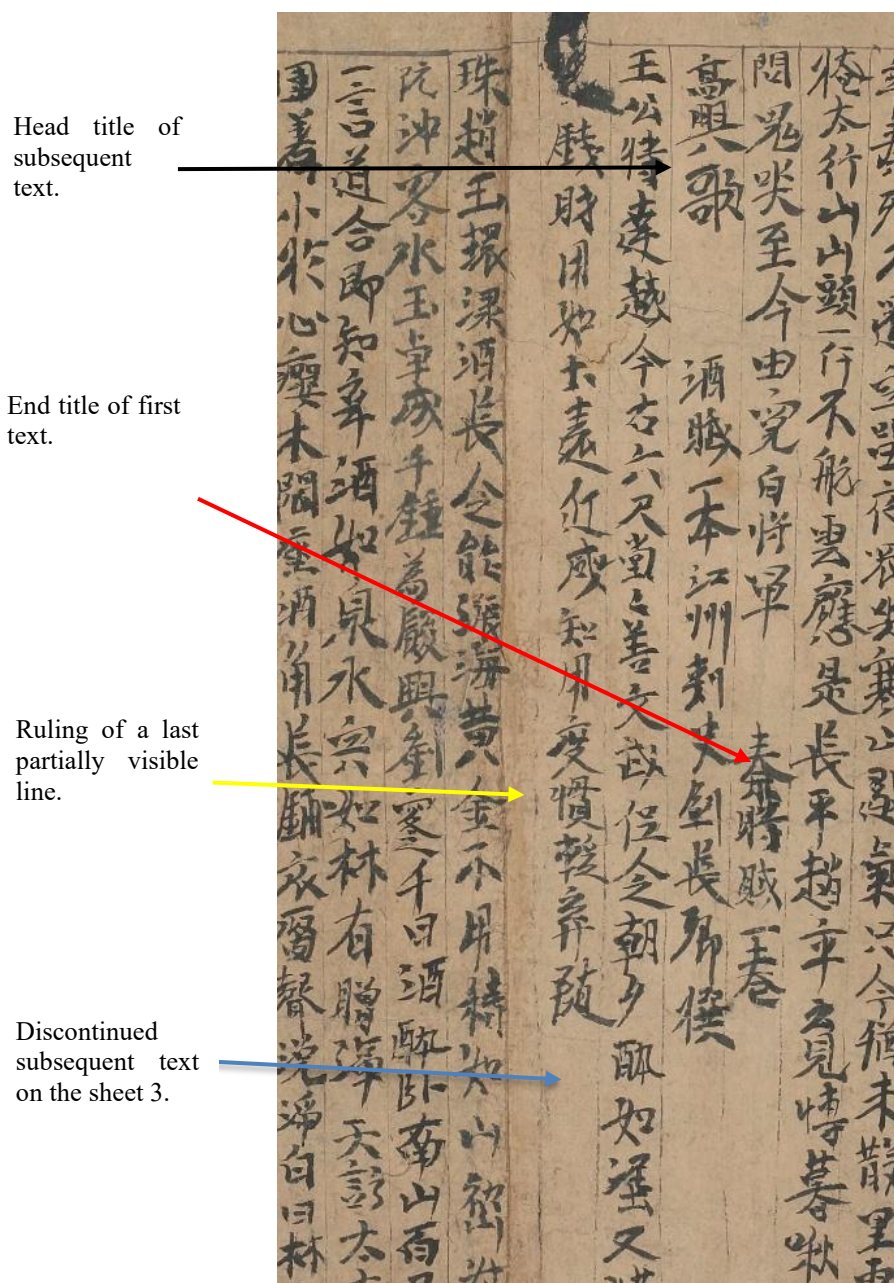 Head title of
subsequent
text.
End title of first
text.
Ruling of a last
partially visible
line.
Discontinued
subsequent text
on the sheet 3.
氣只今猶未散里
太行山山頭一行不航雲應是長平趙卒云見愽暮啾
悶鬼哭至今由寃白將軍 秦時賦一卷
高興歌 酒賦一本江州刾史劉長卿撰
王公特達越今古六尺堂々善文武但令朝夕 酔如埿又
錢財用如土遠近咸知用度慣輕弃随
珠趙玉環渌酒長令能張海黃金不用積如山
阮沖零水玉卓成千鍾為嚴興劉零千日酒酔臥南山百
一言道合即知卒酒如泉水宍如林有贈渾天訝太
小於心癭木閣酒角長衣聲説渧白日林